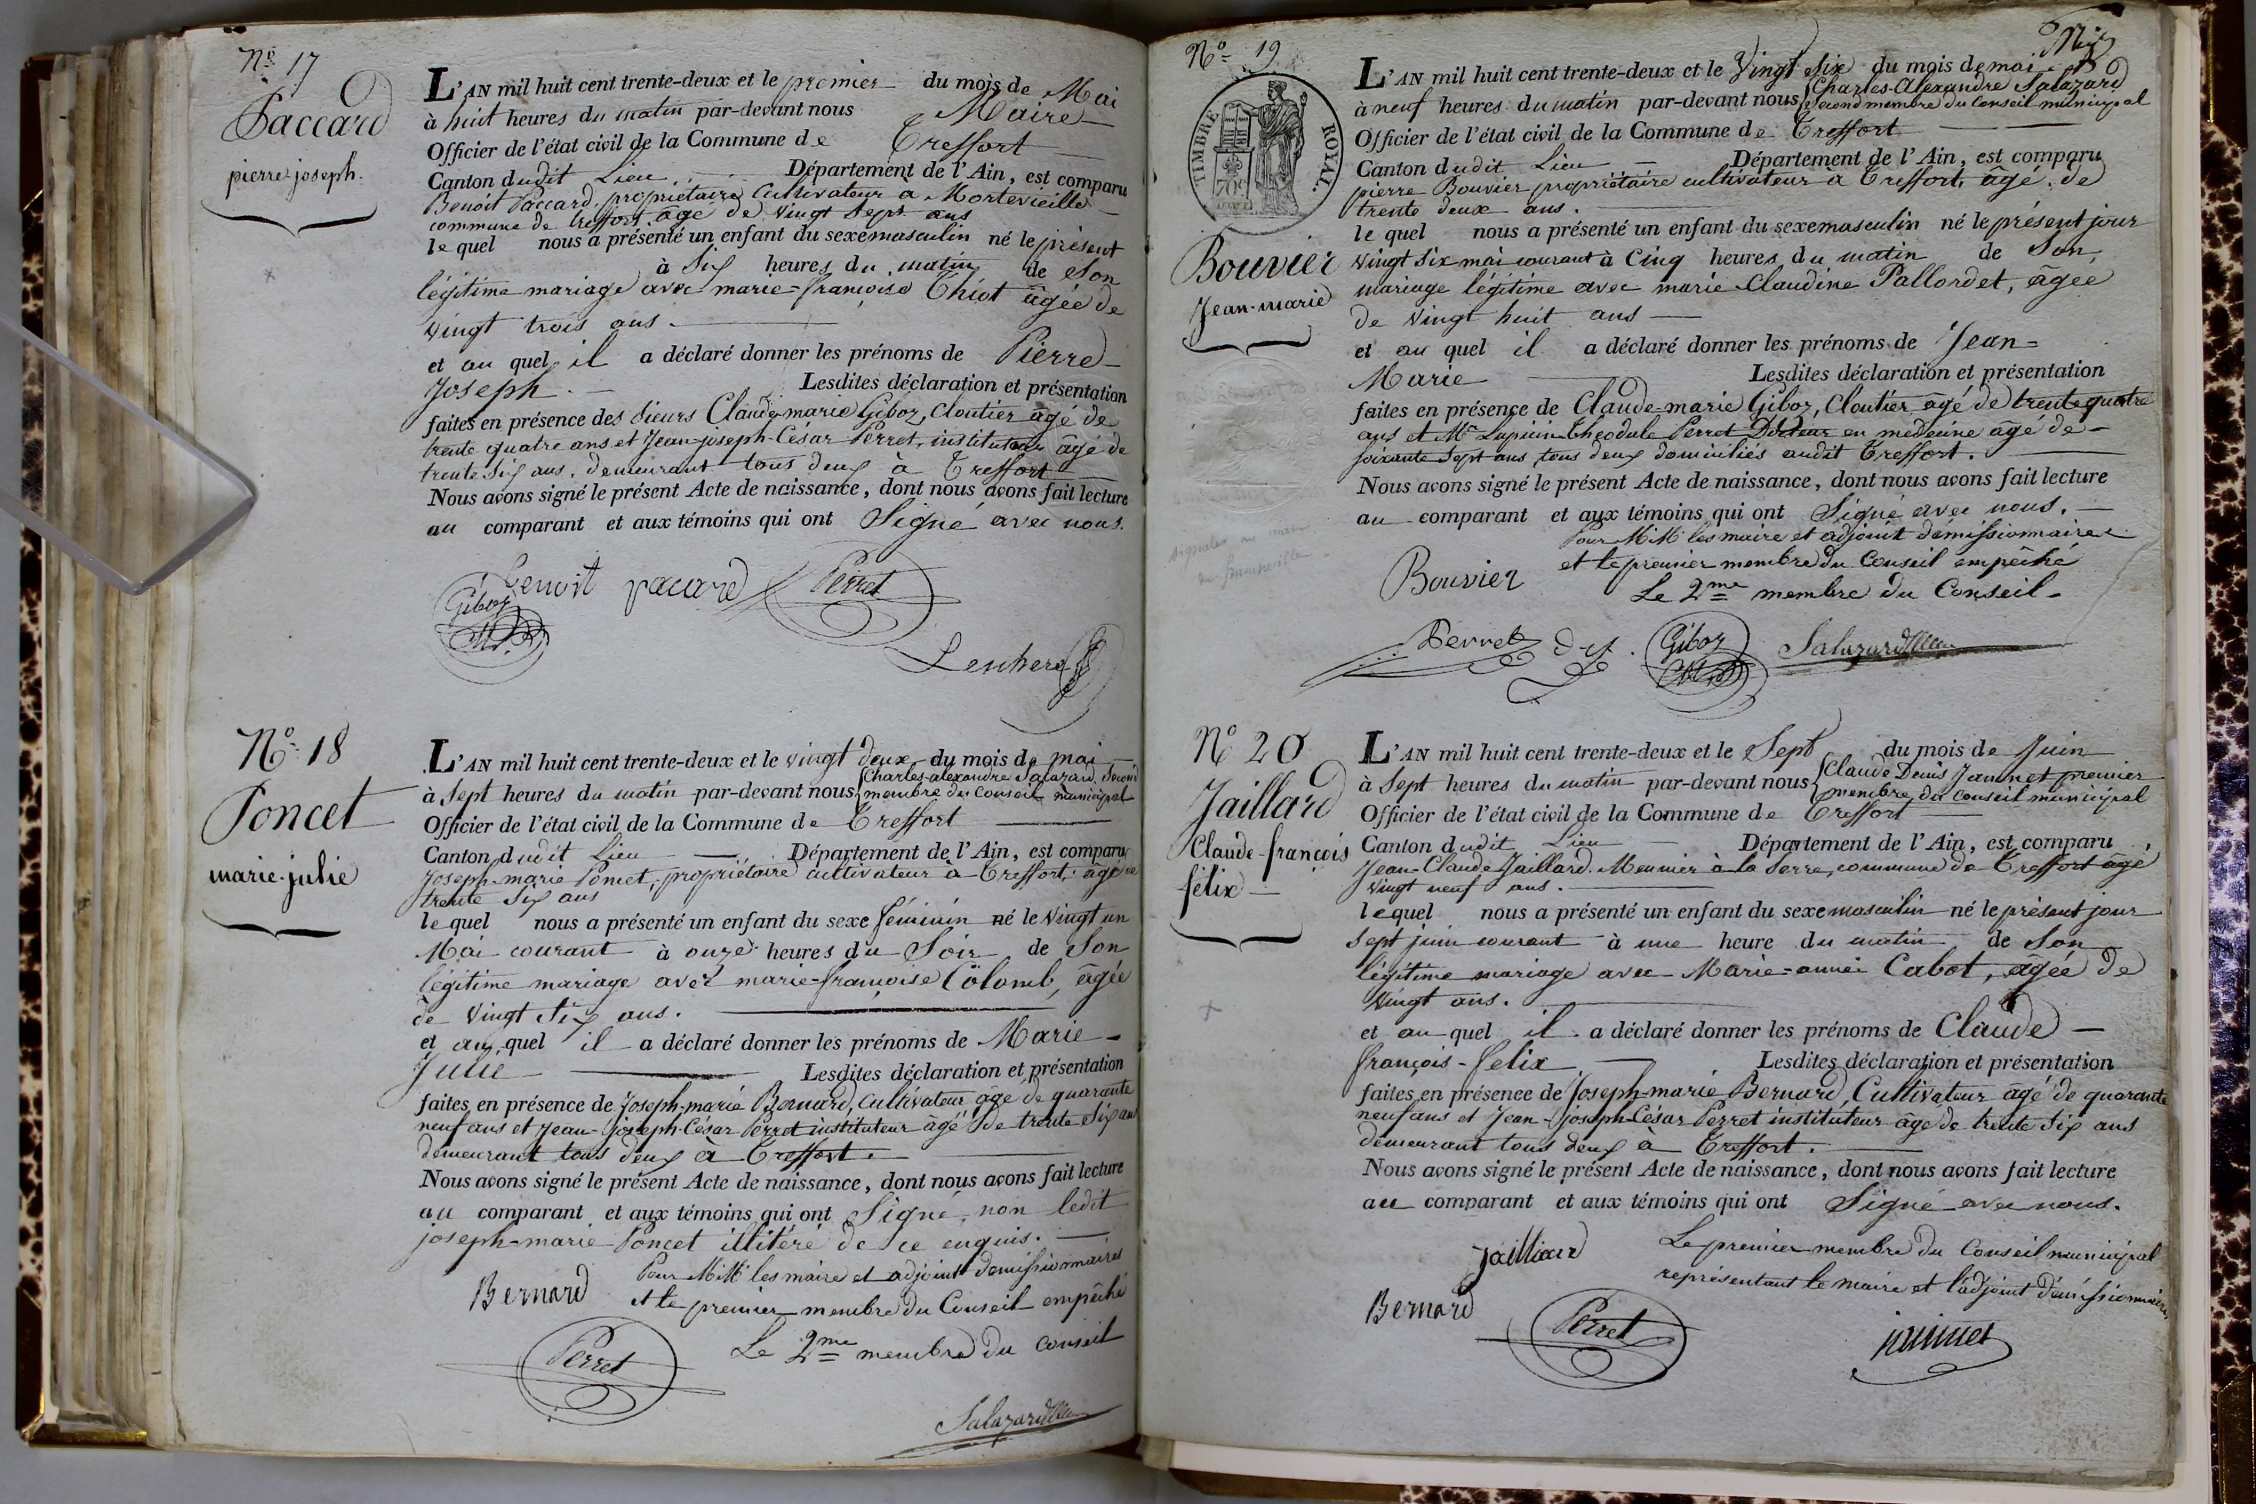 N° 17
Paccard
pierre-joseph.
L'AN mil huit cent trente-deux et le premier du mois de Mai
à huit heures du matin par-devant nous Maire
Officier de l'état civil de la Commune de Treffort
Canton dudit Lieu Département de l'Ain, est comparu
Benoit Paccard, propriétaire Cultivateur à Mortevieille
commune de treffort, âgé de vingt Sept ans
lequel nous a présenté un enfant du sexe masculin né le présent
à Six heures du matin de Son
légitime mariage avec marie-françoise Thiot âgée de
vingt trois ans.
et au quel il a déclaré donner les prénoms de Pierre
Joseph. Lesdites déclaration et présentation
faites en présence des Sieurs Claude-marie Giboz, Cloutier âgé de
trente quatre ans et Jean-joseph-César Perret, instituteur âgé de
trente Six ans, demeurant tous deux à Treffort
Nous avons signé le présent Acte de naissance, dont nous avons fait lecture
au comparant et aux témoins qui ont Signé avec nous.
Benoit pacard Perret
Giboz
N° 18
Poncet
marie-julie
L'AN mil huit cent trente-deux et le vingt deux du mois de mai
à Sept heures du matin par-devant nous Charles-alexandre Salazard Second
membre du Conseil municipal
Officier de l'état civil de la Commune de Treffort
Canton dudit Lieu Département de l'Ain, est comparu
Joseph-marie Poncet, propriétaire cultivateur à Treffort, âgé de
trente Six ans
lequel nous a présenté un enfant du sexe féminin né le vingt un
Mai courant à onze heures du Soir de Son
légitime mariage avec marie-françoise Colomb, âgée
de vingt Six ans.
et au quel il a déclaré donner les prénoms de Marie-
Julie Lesdites déclaration et présentation
faites en présence de Joseph-marie Bernard, Cultivateur âgé de quarante
neuf ans et Jean-joseph-César Perret instituteur âgé de trente Six ans
demeurant tous deux à Treffort.
Nous avons signé le présent Acte de naissance, dont nous avons fait lecture
au comparant et aux témoins qui ont Signé, non ledit
joseph-marie Poncet illitéré de ce enquis.
Pour MM les maire et adjoint démissionnaires
Bernard et le premier membre du Conseil empêché
Perret Le 2me membre du conseil
Salazard
N° 19
TIMBRE ROYAL.
Bouvier
Jean-marie
L'AN mil huit cent trente-deux et le Vingt Six du mois de mai
à neuf heures du matin par-devant nous Charles-Alexandre Salazard
Second membre du Conseil municipal
Officier de l'état civil de la Commune de Treffort
Canton dudit Lieu Département de l'Ain, est comparu
pierre Bouvier propriétaire cultivateur à Treffort, âgé de
trente deux ans.
lequel nous a présenté un enfant du sexe masculin né le présent jour
vingt Six mai courant à Cinq heures du matin de Son
mariage légitime avec marie-Claudine Pallordet, âgée
de vingt huit ans
et au quel il a déclaré donner les prénoms de Jean-
Marie Lesdites déclaration et présentation
faites en présence de Claude-marie Giboz, Cloutier âgé de trente quatre
ans et Mr Lupicin-théodule Perret Docteur en médecine âgé de
soixante Sept ans, tous deux domiciliés audit Treffort.
Nous avons signé le présent Acte de naissance, dont nous avons fait lecture
au comparant et aux témoins qui ont Signé avec nous.
Pour MM les maire et adjoint démissionnaires
et le premier membre du Conseil empêché
Bouvier Le 2me membre du Conseil
Perret Giboz Salazard
N° 20
Jaillard
Claude-françois
félix
L'AN mil huit cent trente-deux et le Sept du mois de Juin
à Sept heures du matin par-devant nous Claude Denis Janinet premier
membre du conseil municipal
Officier de l'état civil de la Commune de Treffort
Canton dudit Lieu Département de l'Ain, est comparu
Jean-Claude Jaillard Meunier à la Serre, commune de Treffort âgé
vingt neuf ans.
lequel nous a présenté un enfant du sexe masculin né le présent jour
Sept juin courant à une heure du matin de Son
légitime mariage avec Marie-anne Cabot, âgée de
vingt ans.
et au quel il a déclaré donner les prénoms de Claude
françois-félix Lesdites déclaration et présentation
faites en présence de Joseph-marie Bernard Cultivateur âgé de quarante
neuf ans et Jean-joseph-César Perret instituteur âgé de trente Six ans
demeurant tous deux à Treffort.
Nous avons signé le présent Acte de naissance, dont nous avons fait lecture
au comparant et aux témoins qui ont Signé avec nous.
Jailliard Le premier membre du Conseil municipal
représentant le maire et l'adjoint démissionnaires
Bernard Perret